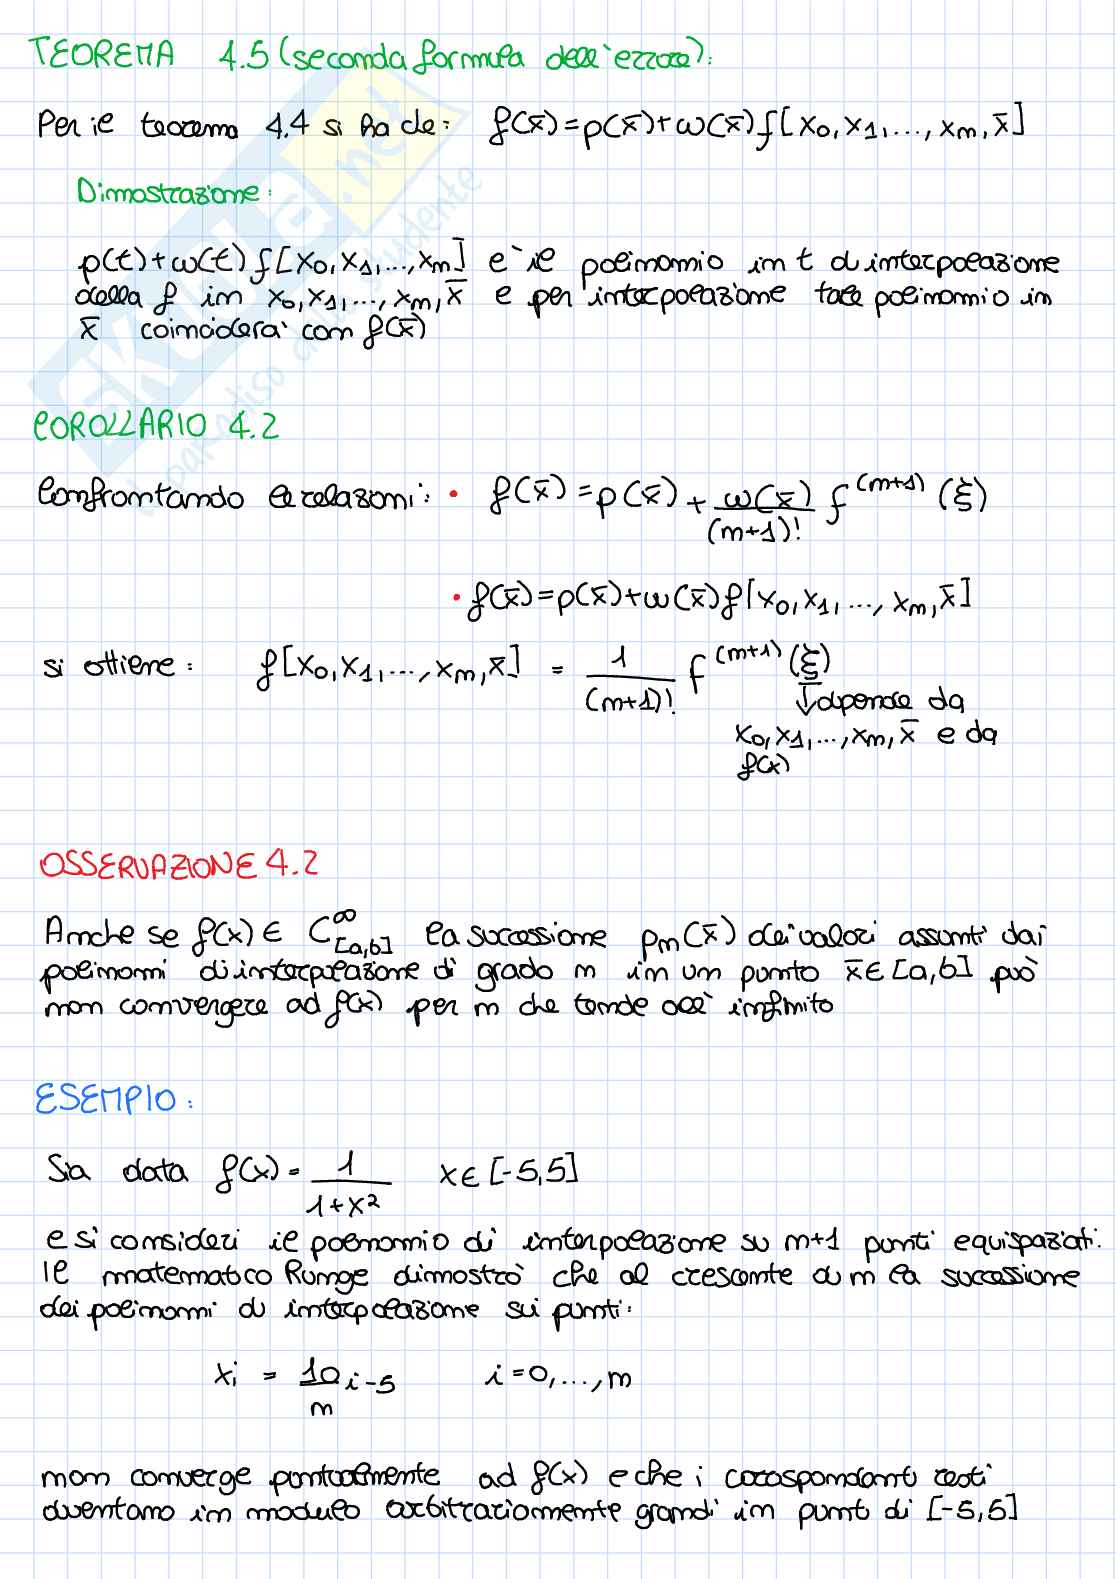 TEOREMA 4.5 (seconda formula dell'errore):
Per il teorema 4.4 si ha che: f(x̄)=p(x̄)+ω(x̄)f[x₀,x₁,...,xₙ,x̄]
Dimostrazione:
p(t)+ω(t)f[x₀,x₁,...,xₙ] e' il polinomio in t di interpolazione
della f in x₀,x₁,...,xₙ,x̄ e per interpolazione tale polinomio in
x̄ coinciderà con f(x̄)
COROLLARIO 4.2
Confrontando le relazioni: • f(x̄)=p(x̄)+ω(x̄)/(n+1)! f⁽ⁿ⁺¹⁾(ξ)
• f(x̄)=p(x̄)+ω(x̄)f[x₀,x₁,...,xₙ,x̄]
si ottiene: f[x₀,x₁,...,xₙ,x̄] = 1/(n+1)! f⁽ⁿ⁺¹⁾(ξ)
↓dipende da
x₀,x₁,...,xₙ,x̄ e da
f(x)
OSSERVAZIONE 4.2
Anche se f(x)∈ C^∞_[a,b] la successione pₙ(x̄) dei valori assunti dai
polinomi di interpolazione di grado n in un punto x̄∈[a,b] può
non convergere ad f(x) per n che tende all' infinito
ESEMPIO:
Sia data f(x)= 1/(1+x²) x∈[-5,5]
e si consideri il polinomio di interpolazione su n+1 punti equispaziati.
Il matematico Runge dimostrò che al crescente di n la successione
dei polinomi di interpolazione sui punti:
xᵢ = 10/n i-5 i=0,...,n
non converge puntualmente ad f(x) e che i corrispondenti resti
diventano in modulo arbitrariamente grandi in punti di [-5,5]
SKUOLA.net
il paradiso dello studente